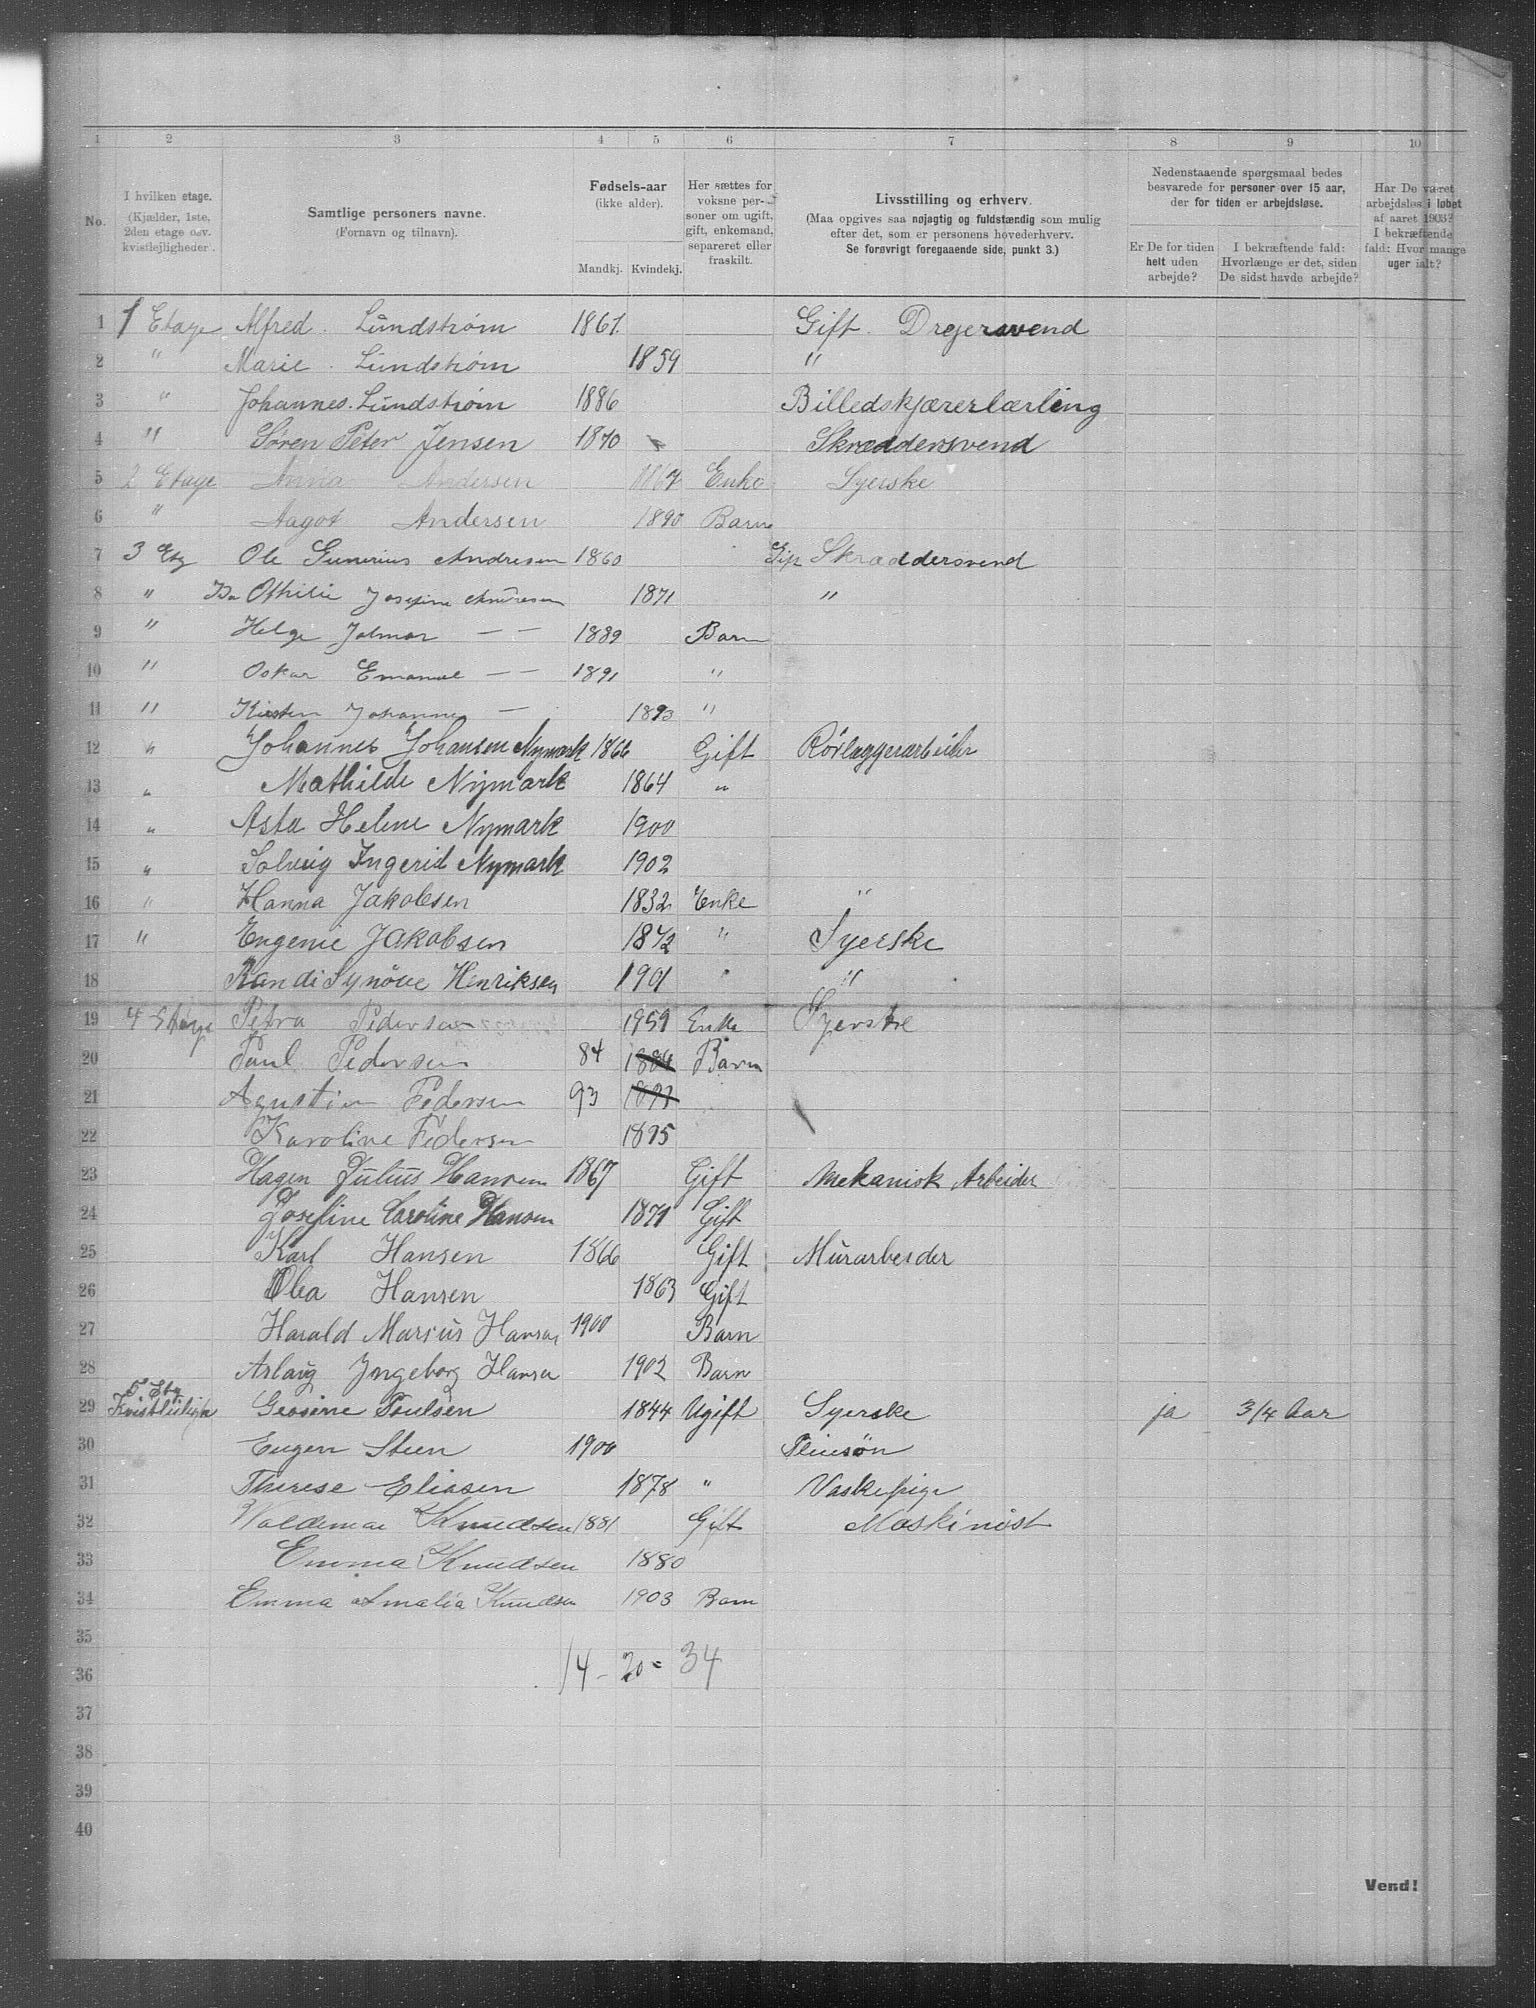 1 2 3 4 5 6 7 8 9 10
No.
I hvilken etage. (Kjælder, 1ste, 2den etage osv. kvistlejligheder.
Samtlige personers navne. (Fornavn og tilnavn).
Fødsels-aar (ikke alder).
Mandkj. Kvindekj.
Her sættes for voksne personer om ugift, gift, enkemand, separeret eller fraskilt.
Livsstilling og erhverv.
(Maa opgives saa nøjagtig og fuldstændig som mulig efter det, som er personens hovederhverv.
Se forøvrigt foregaaende side, punkt 3.)
Nedenstaaende spørgsmaal bedes besvarede for personer over 15 aar, der for tiden er arbejdsløse.
Er De for tiden helt uden arbejde?
I bekræftende fald: Hvorlænge er det, siden De sidst havde arbejde?
Har De været arbejdsløs i løbet af aaret 1903? I bekræftende fald: Hvor mange uger ialt?
1 1 Etage Alfred. Lundstrøm 1861. Gift. Drejersvend
2 " Marie. Lundstrøm 1859 "
3 " Johannes. Lundstrøm 1886 Billedskjærerlærling
4 " Søren Peter Jensen 1870 Skræddersvend
5 2 Etage Anna Andersen 1867 Enke Syerske
6 " Aagot Andersen 1890 Barn
7 3 Etg Ole Gunerius Andresen 1860 Gift Skræddersvend
8 " Othilie Josefine Andresen 1871 "
9 " Helge Jalmar — — 1889 Barn
10 " Oskar Emanuel — — 1891 "
11 " Kirsten Johanne — 1893 "
12 " Johannes Johansen Nymark 1866 Gift Rørlæggerarbeider
13 " Mathilde Nymark 1864 "
14 " Asta Helene Nymark 1900
15 " Solveig Ingerid Nymark 1902
16 " Hanna Jakobsen 1832 Enke "
17 " Eugenie Jakobsen 1872 " Syerske
18 Randi Synöve Henriksen 1901 "
19 4 Etage Petra Pedersen 1959 Enke Syerske
20 Paul Pedersen 84 1884 Barn
21 Agustin Pedersen 93 1893
22 Karoline Pedersen 1895
23 Hagen Julius Hansen 1867 Gift Mekanisk Arbeider
24 Josefine Caroline Hansen 1871 Gift
25 Karl Hansen 1866 Gift Murarbeider
26 Olea Hansen 1863 Gift
27 Harald Marius Hansen 1900 Barn
28 Aslaug Ingeborg Hansen 1902 Barn
5 Etg
29 Poulsen 1844 Ugift Syerske ja 3/4 Aar
30 Eugen Steen 1900 Pleiesøn
31 Therese Eliasen 1878 " Vaskepige
32 Waldemar Knudsen 1881 Gift Maskinist
33 Emma Knudsen 1880
34 Emma Amalia Knudsen 1903 Barn
35
36 14 - 20 = 34
37
38
39
40
Vend!